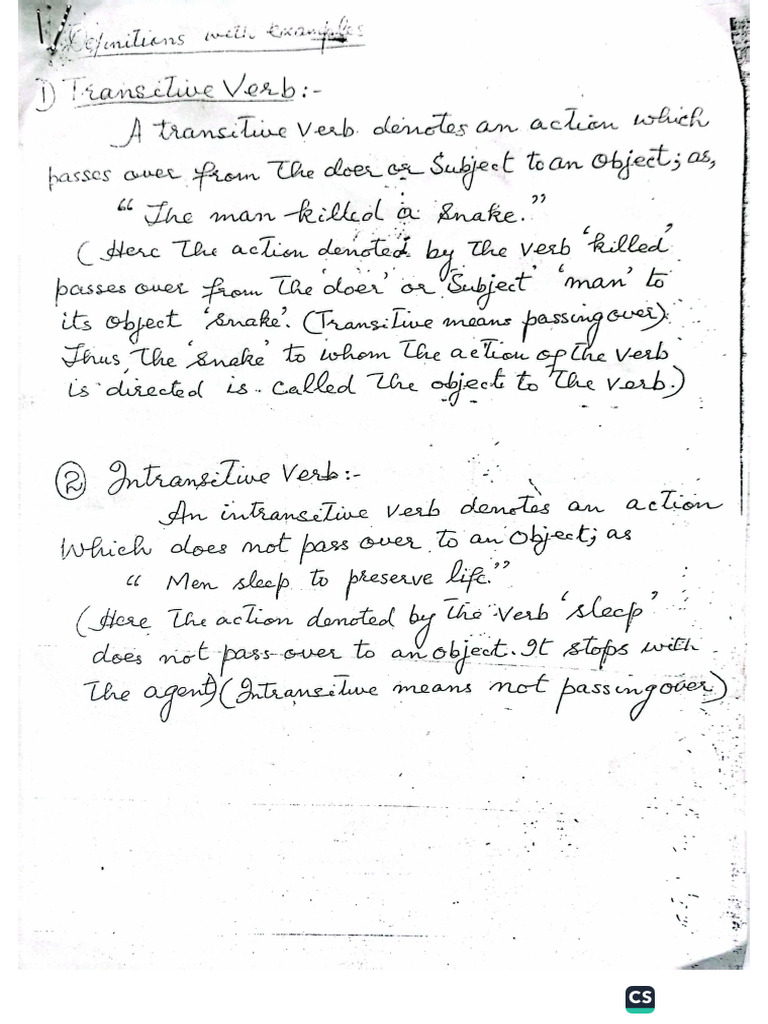 Definitions with Examples
1) Transitive Verb:-
A transitive verb denotes an action which
passes over from the doer or Subject to an object; as,
"The man killed a snake."
(Here the action denoted by the verb 'killed'
passes over from the 'doer' or 'Subject' 'man' to
its object 'snake'. (Transitive means passing over).
Thus, the 'snake' to whom the action of the verb
is directed is called the object to the verb.)
2 Intransitive Verb:-
An intransitive verb denotes an action
Which does not pass over to an object; as
"Men sleep to preserve life."
(Here the action denoted by the verb 'sleep'
does not pass over to an object. It stops with
the agent) (Intransitive means not passing over)
CS